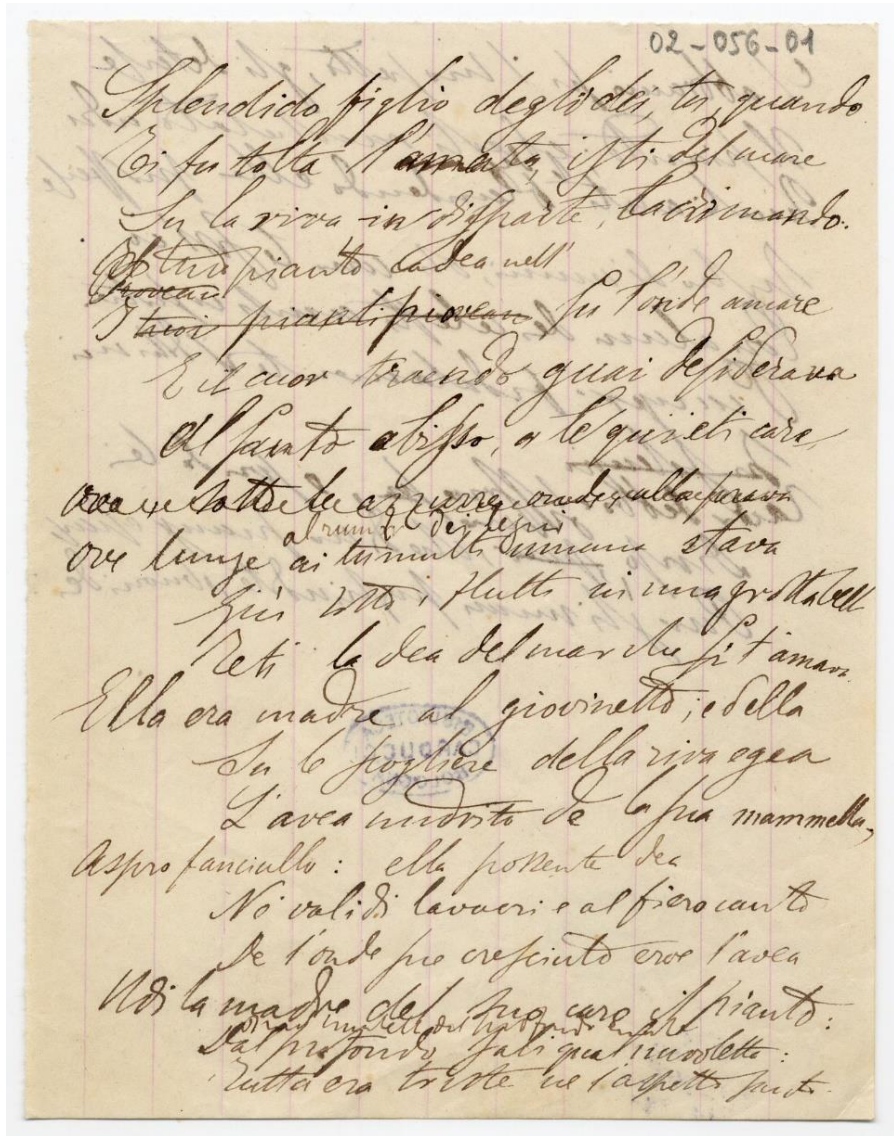 02-056-01
Splendido figlio degli dei, tu, quando
Ti fu tolta l'amata, isti del mare
Su la riva in disparte, lacrimando.
Il tuo pianto cadea nell'
Piovean
I tuoi pianti piovean su l'onde amare
E il cuor traendo guai desiderava
Al santo abisso, a le quieti care,
sotto le azzurre onde
al rumor dei legni
ove lunge ai tumulti umana stava
Giù sotto i flutti in una grotta bella
Teti la dea del mar che sì t'amava.
Ella era madre al giovinetto; ed ella
Su le scogliere della riva egea
L'avea nudrito de la sua mammella,
Aspro fanciullo: ella possente dea
Ne' validi lavacri e al fiero canto
De l'onde sue cresciuto eroe l'avea
Udì la madre del suo care il pianto:
Dal profondo salì qual nuvoletta:
Tutta era triste ne l'aspetto santo.
BIBLIOTECA CARDUCCI BOLOGNA